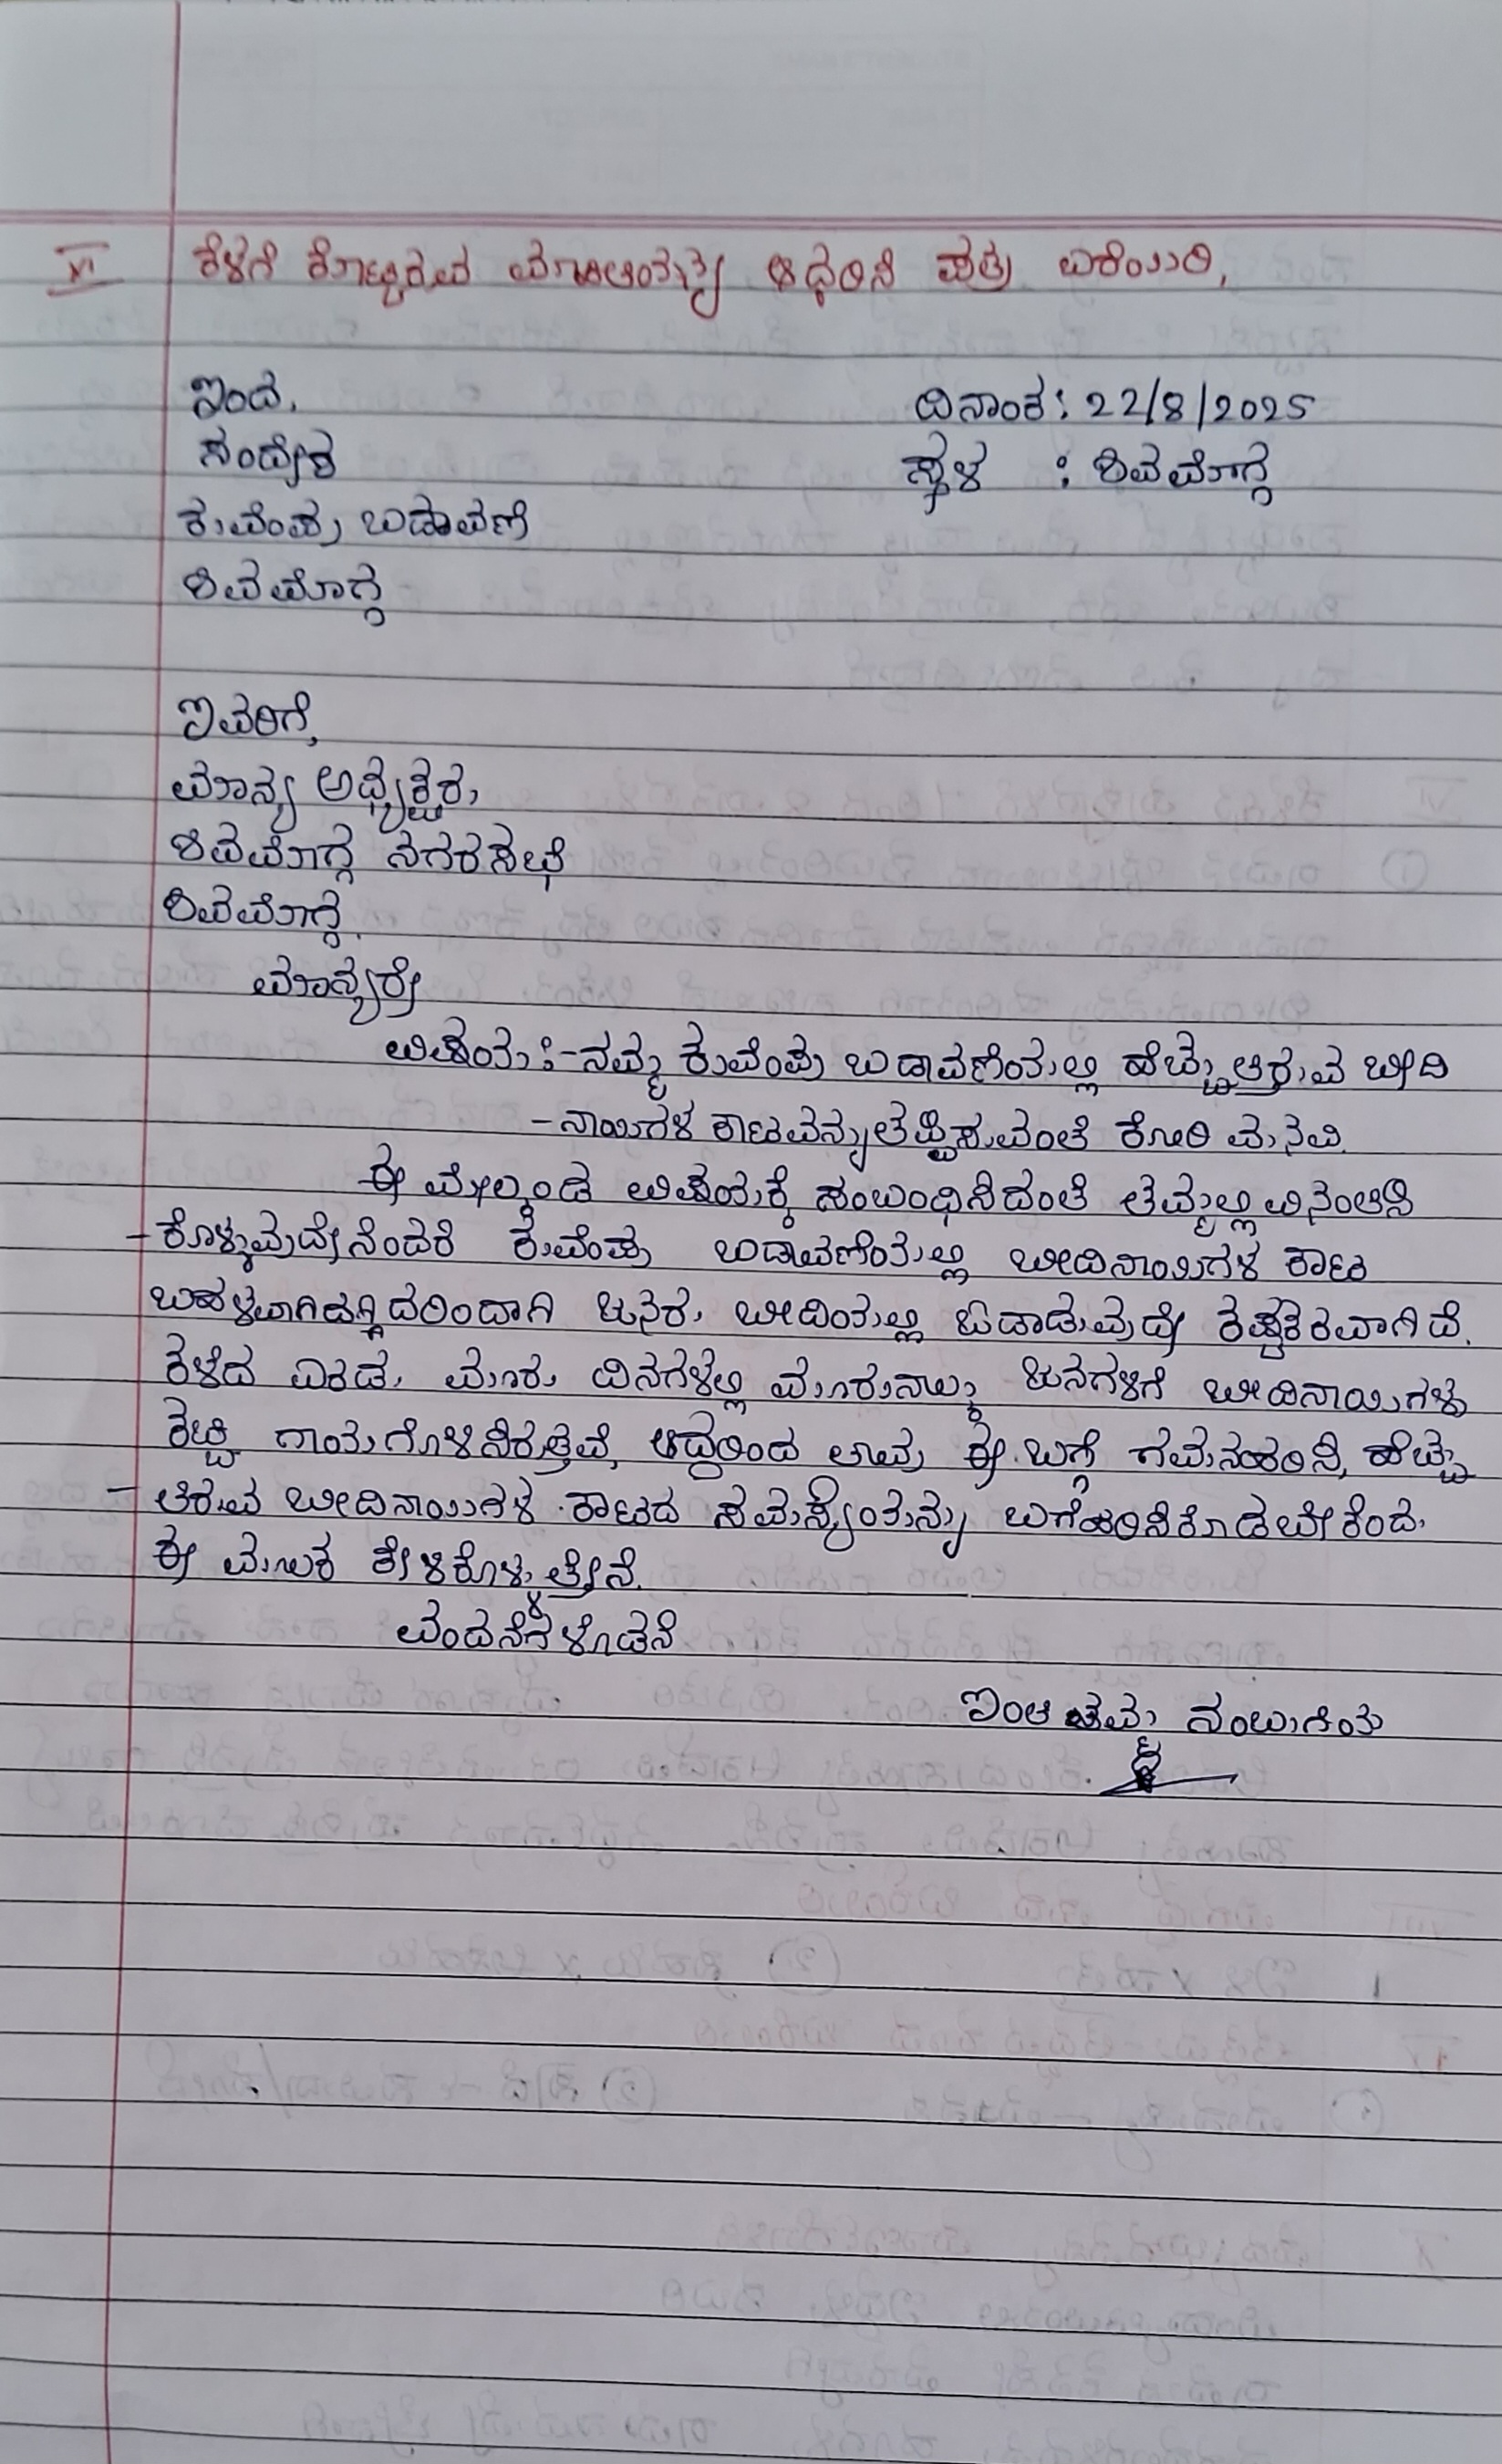 VI ಕೆಳಗೆ ಕೊಟ್ಟಿರುವ ಮಾಹಿತಿಯನ್ನು ಆಧರಿಸಿ ಪತ್ರ ಬರೆಯಿರಿ,
ಇಂದ,
ದಿನಾಂಕ: 22/8/2025
ಸಂದೇಶ
ಸ್ಥಳ : ಶಿವಮೊಗ್ಗ
ಕುವೆಂಪು ಬಡಾವಣೆ
ಶಿವಮೊಗ್ಗ
ಇವರಿಗೆ,
ಮಾನ್ಯ ಅಧ್ಯಕ್ಷರು,
ಶಿವಮೊಗ್ಗ ನಗರಸಭೆ
ಶಿವಮೊಗ್ಗ.
ಮಾನ್ಯರೇ
ವಿಷಯ:-ನಮ್ಮ ಕುವೆಂಪು ಬಡಾವಣೆಯಲ್ಲಿ ಹೆಚ್ಚುತ್ತಿರುವ ಬೀದಿ
-ನಾಯಿಗಳ ಕಾಟವನ್ನುತಪ್ಪಿಸುವಂತೆ ಕೋರಿ ಮನವಿ.
ಈ ಮೇಲ್ಕಂಡ ವಿಷಯಕ್ಕೆ ಸಂಬಂಧಿಸಿದಂತೆ ತಮ್ಮಲ್ಲಿ ವಿನಂತಿಸಿ
-ಕೊಳ್ಳುವುದೇನೆಂದರೆ ಕುವೆಂಪು ಬಡಾವಣೆಯಲ್ಲಿ ಬೀದಿನಾಯಿಗಳ ಕಾಟ
ಬಹಳವಾಗಿದ್ದು ಇದರಿಂದಾಗಿ ಜನರು ಬೀದಿಯಲ್ಲಿ ಓಡಾಡುವುದೇ ಕಷ್ಟಕರವಾಗಿದೆ.
ಕಳೆದ ಎರಡು ಮೂರು ದಿನಗಳಲ್ಲಿ ಮೂರುನಾಲ್ಕು ಜನಗಳಿಗೆ ಬೀದಿನಾಯಿಗಳು
ಕಚ್ಚಿ ಗಾಯಗೊಳಿಸಿರುತ್ತವೆ, ಆದ್ದರಿಂದ ತಾವು ಈ ಬಗ್ಗೆ ಗಮನಹರಿಸಿ, ಹೆಚ್ಚು
-ತಿರುವ ಬೀದಿನಾಯಿಗಳ ಕಾಟದ ಸಮಸ್ಯೆಯನ್ನು ಬಗೆಹರಿಸಿಕೊಡಬೇಕೆಂದು
ಈ ಮೂಲಕ ಕೇಳಿಕೊಳ್ಳುತ್ತೇನೆ.
ವಂದನೆಗಳೊಡನೆ
ಇಂತಿ ತಮ್ಮ ನಂಬುಗೆಯ